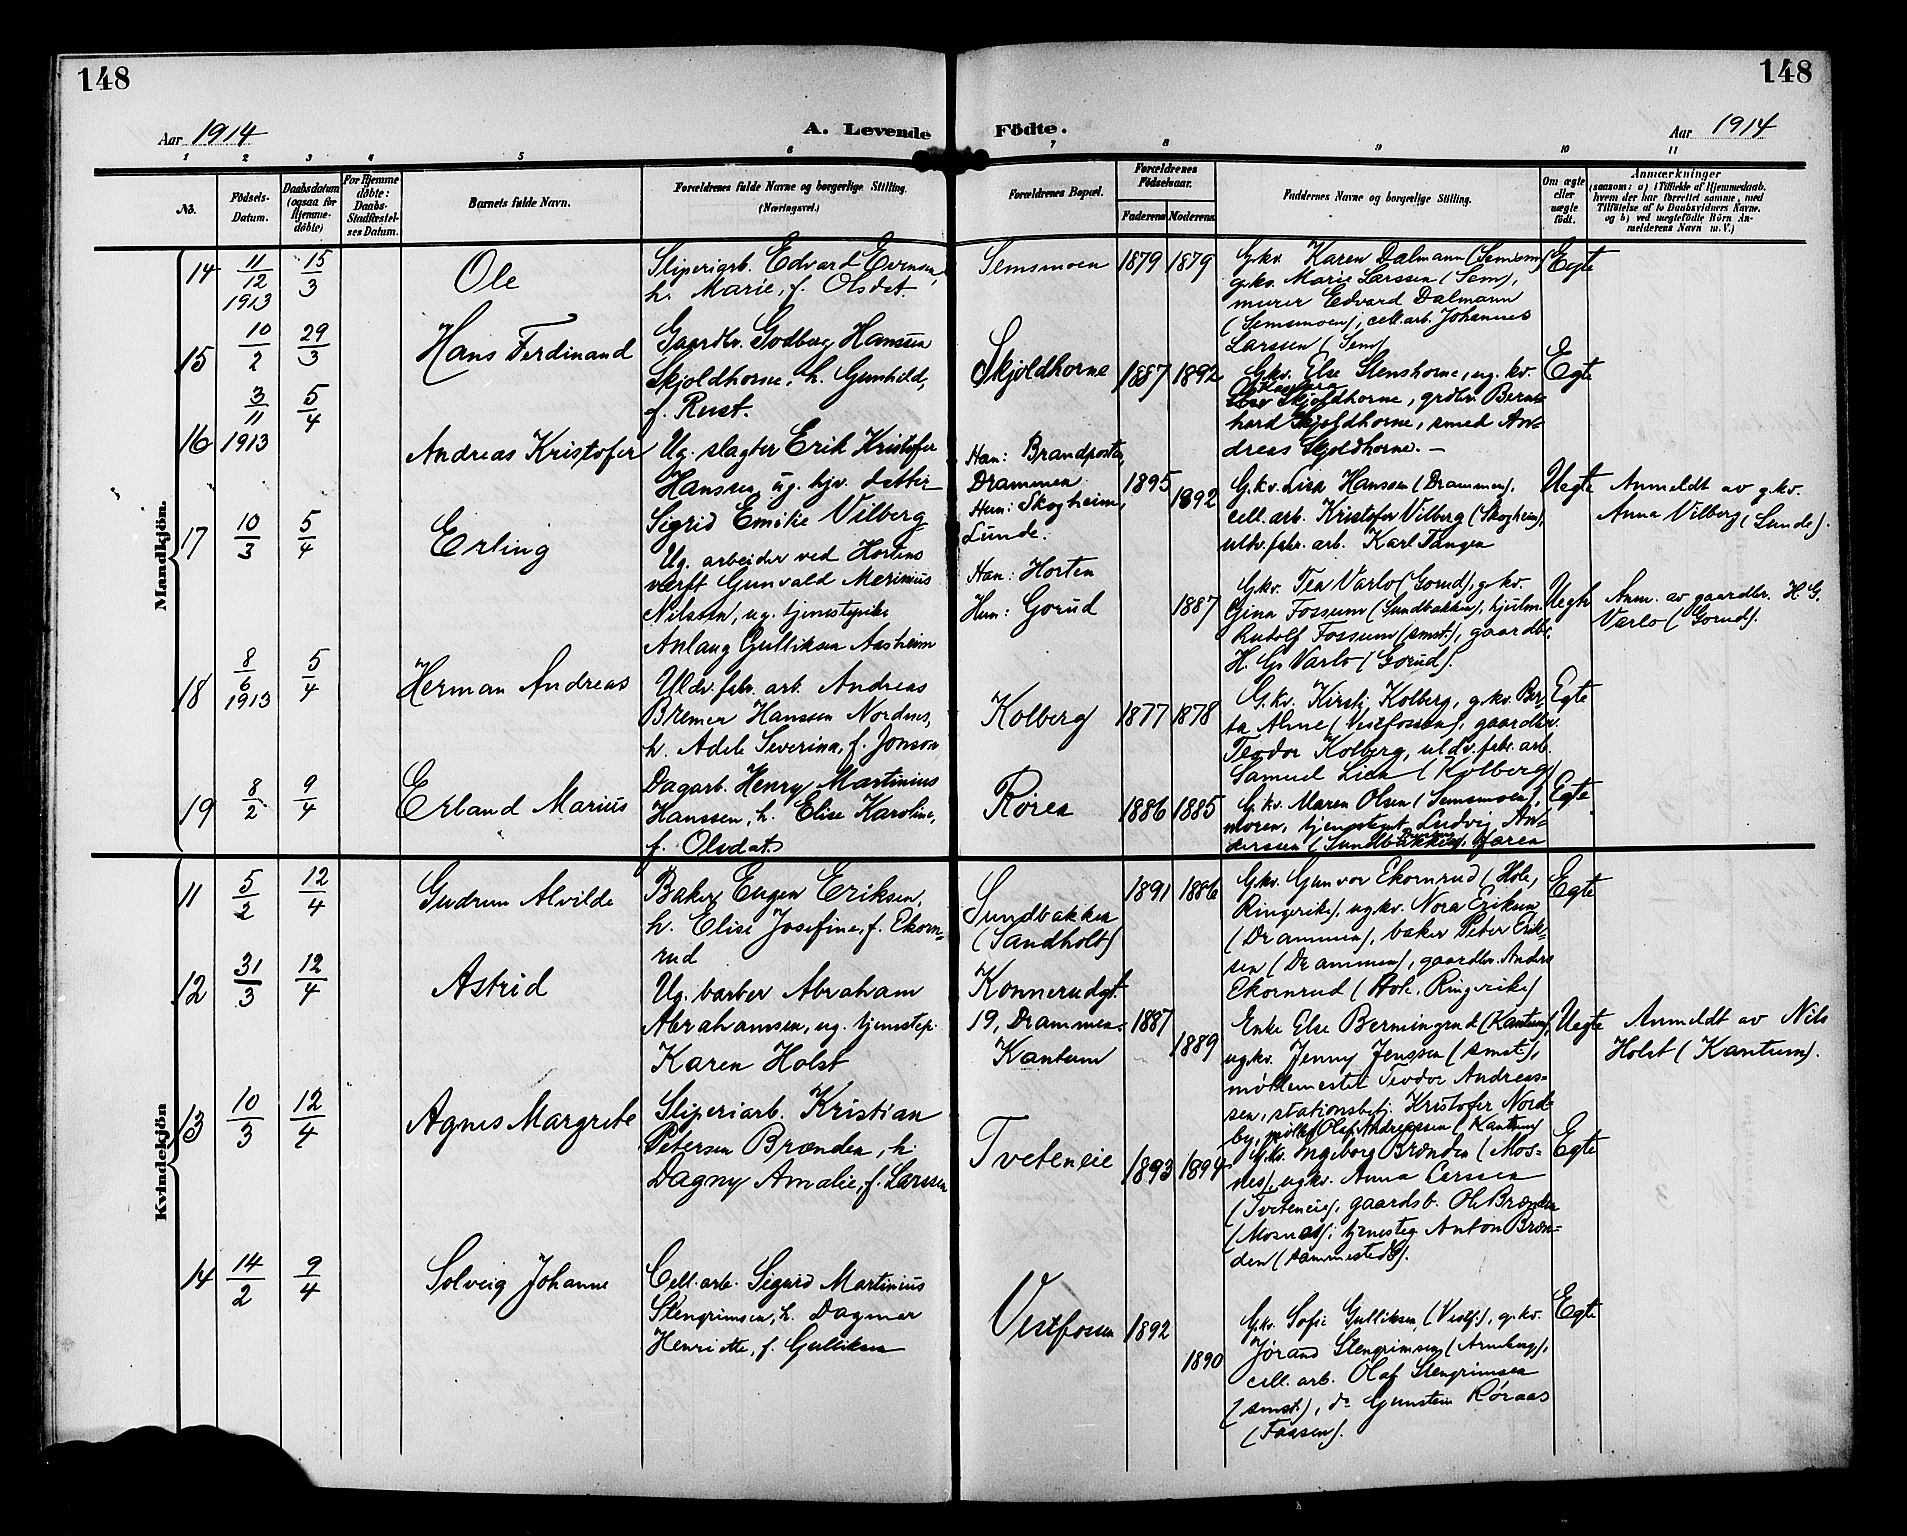 148
148
Aar 1914
A. Levende Födte.
Aar 1914
1 2 3 4 5 6 7 8 9 10 11
No.
Födsels-Datum.
Daabsdatum (ogsaa for Hjemme-döbte)
For Hjemme döbte: Daabs-Stadfæstel-ses Datum.
Barnets fulde Navn.
Forældrenes fulde Navne og borgerlige Stilling.
(Næringsvei.)
Forældrenes Bopæl.
Forældrenes Födselsaar.
Faderens Moderens
Faddernes Navne og borgerlige Stilling.
Om ægte eller uægte födt.
Anmærkninger
(saasom: a) i Tilfælde af Hjemmedaab.
hvem der har forrettet samme, med
Tilföielse af to Daabsvidners Navne,
og b) ved uegtefödte Börn An-
melderens Navn m. V.)
Mandkjön.
14 11/12 1913 15/3 Ole
Sliperiarb. Edvard Evensen,
h. Marie, f. Olsdat.
Semsmoen 1879 1879
G.kv. Karen Dalmann (Semsm)
g.kv. Marie Larssen (Sem),
murer Edvard Dalmann
(Semsmoen), cell.arb. Johannes
Larssen (Sem)
Egte
15 10/2 29/3 Hans Ferdinand
Gaardbr. Godberg Hanssen
Skjoldhorne, h. Gunhild,
f. Rust.
Skjoldhorne 1887 1892
G.kv. Else Stenshorne, ug. kv.
Skjoldhorne, grdbr. Bern-
hard Skjoldhorne, smed An-
dreas Skjoldhorne. —
Egte
16 3/11 1913 5/4 Andreas Kristofer
Ug. slagter Erik Kristofer
Hanssen, ug. hjv. datter
Sigrid Emilie Vilberg
Han: Brandposten,
Drammen
Hun: Skogheim,
Lunde.
1895 1892
G.kv. Lisa Hanssen (Drammen),
cell. arb. Kristofer Vilberg (Skogheim),
uldv. fabr. arb. Karl Tangen
Uegte
Anmeldt av g.kv.
Anna Vilberg (Lunde).
17 10/3 5/4 Erling
Ug. arbeider ved Hortens
verft Gunvald Marinius
Nilsen, ug. tjenestepike
Anlaug Gulliksen Aasheim
Han: Horten
Hun: Gorud
1887
G.kv. Tea Varlo (Gorud), g.kv.
Gina Fossum (Sundbakken), hjulm.
Rudolf Fossum (smst.), gaardbr.
H. G. Varlo (Gorud).
Uegte
Anm. av gaardbr. H. G.
Varlo (Gorud).
18 8/6 1913 5/4 Herman Andreas
Uldv. fabr. arb. Andreas
Bremer Hanssen Nordnes,
h. Adele Severina, f. Jonson
Kolberg 1877 1878
G.kv. Kirsti Kolberg, g.kv. Ber-
ta Alme (Vestfossen), gaardbr.
Teodor Kolberg, uldv. fabr. arb.
Samuel Lien (Kolberg)
Egte
19 8/2 9/4 Erland Marius
Dagarb. Henry Martinius
Hanssen, h. Elise Karoline,
f. Olsdat.
Røren 1886 1885
G.kv. Maren Olsen (Semsmoen),
moren, tjenestegt. Ludvig An-
derssen (Sundbakken), faren
Egte
Kvindekjön
11 5/2 12/4 Gudrun Alvilde
Baker Eugen Eriksen,
h. Elise Josefine, f. Ekorn-
rud
Sundbakken
(Sandholt)
1891 1886
G.kv. Gunvor Ekornrud (Hole,
Ringerike), ug.kv. Nora Eriksen
(Drammen), baker Peter Erik-
sen (Drammen), gaardbr. Anders
Ekornrud (Hole, Ringerike)
Egte
12 31/3 12/4 Astrid
Ug. barber Abraham
Abrahamsen, ug. tjenstep.
Karen Holst
Konnerudgt.
19, Drammen.
Kantum
1887 1889
Enke Else Bermingrud (Kantum),
ug.kv. Jenny Jenssen (smst.),
møllemester Teodor Andreas-
sen, stationsbetj. Kristofer Nord-
by, Olaf Andreassen (Kantum)
Uegte
Anmeldt av Nils
Holst (Kantum).
13 10/3 12/4 Agnes Margrete
Sliperiarb. Kristian
Petersen Brænden, h.
Dagny Amalie, f. Larssen
Tveteneie 1893 1894
G.kv. Ingeborg Brænden (Mos-
nes), ug.kv. Anna Larssen
(Tveteneie), gaardsb. Ole Brænden
(Mosnes), tjenesteg. Anton Bræn-
den (sammesteds).
Egte
14 14/2 9/4 Solveig Johanne
Cell. arb. Sigurd Martinius
Stengrimsen, h. Dagmar
Henriette, f. Gulliksen
Vestfossen 1892 1890
G.kv. Sofie Gulliksen (Vestf.), g.kv.
Jørand Stengrimsen,
cell. arb. Olaf Stengrimsen
(smst.), do Gunstein Røraas
(Fossen).
Egte